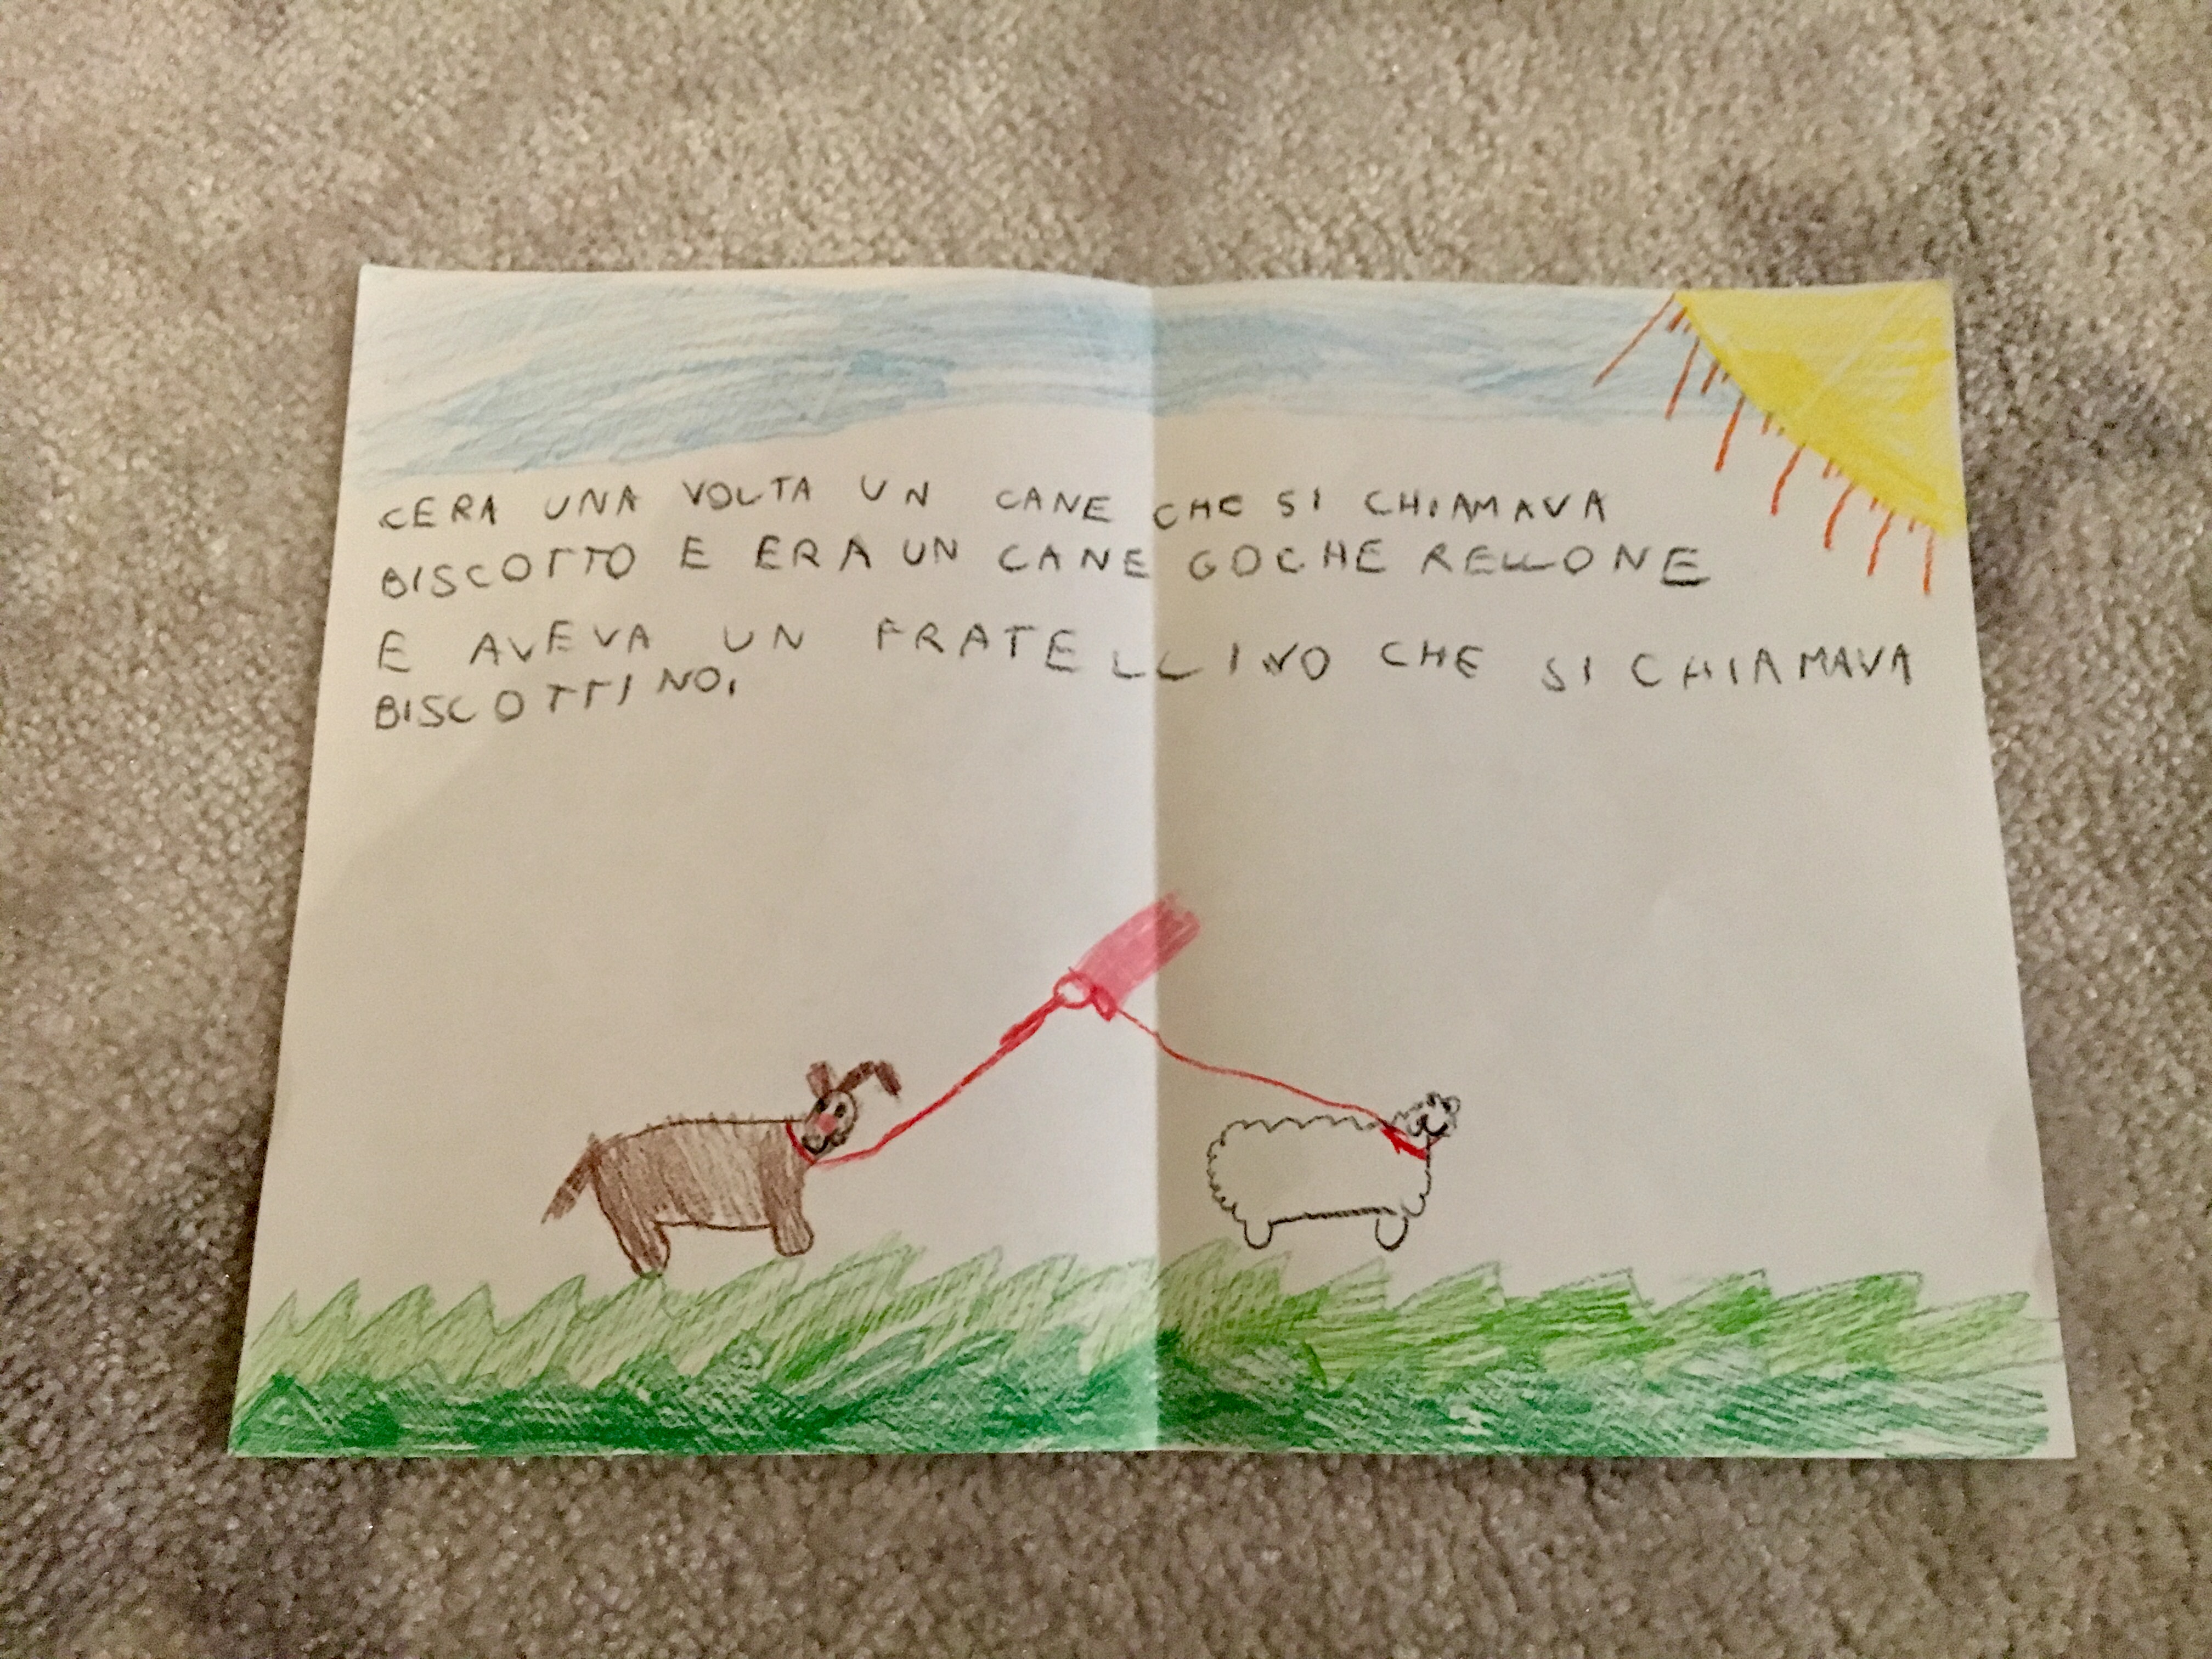 CERA UNA VOLTA UN CANE CHE SI CHIAMAVA
BISCOTTO E ERA UN CANE GOCHE RELLONE
E AVEVA UN FRATELLINO CHE SI CHIAMAVA
BISCOTTINO.